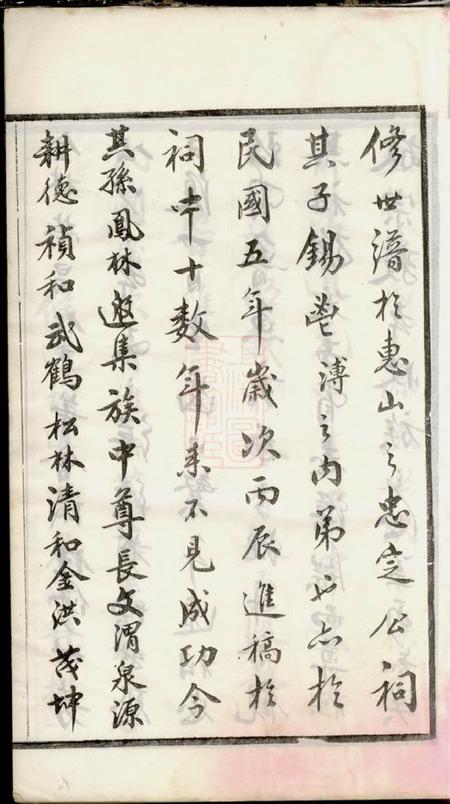 修世譜於惠山之忠定公祠
其子錫鬯溥之內弟也亦於
民國五年歲次丙辰進稿於
祠中十數年來不見成功今
其孫鳳林邀集族中尊長文渭泉源
耕德禎和武鶴松林清和金洪茂坤